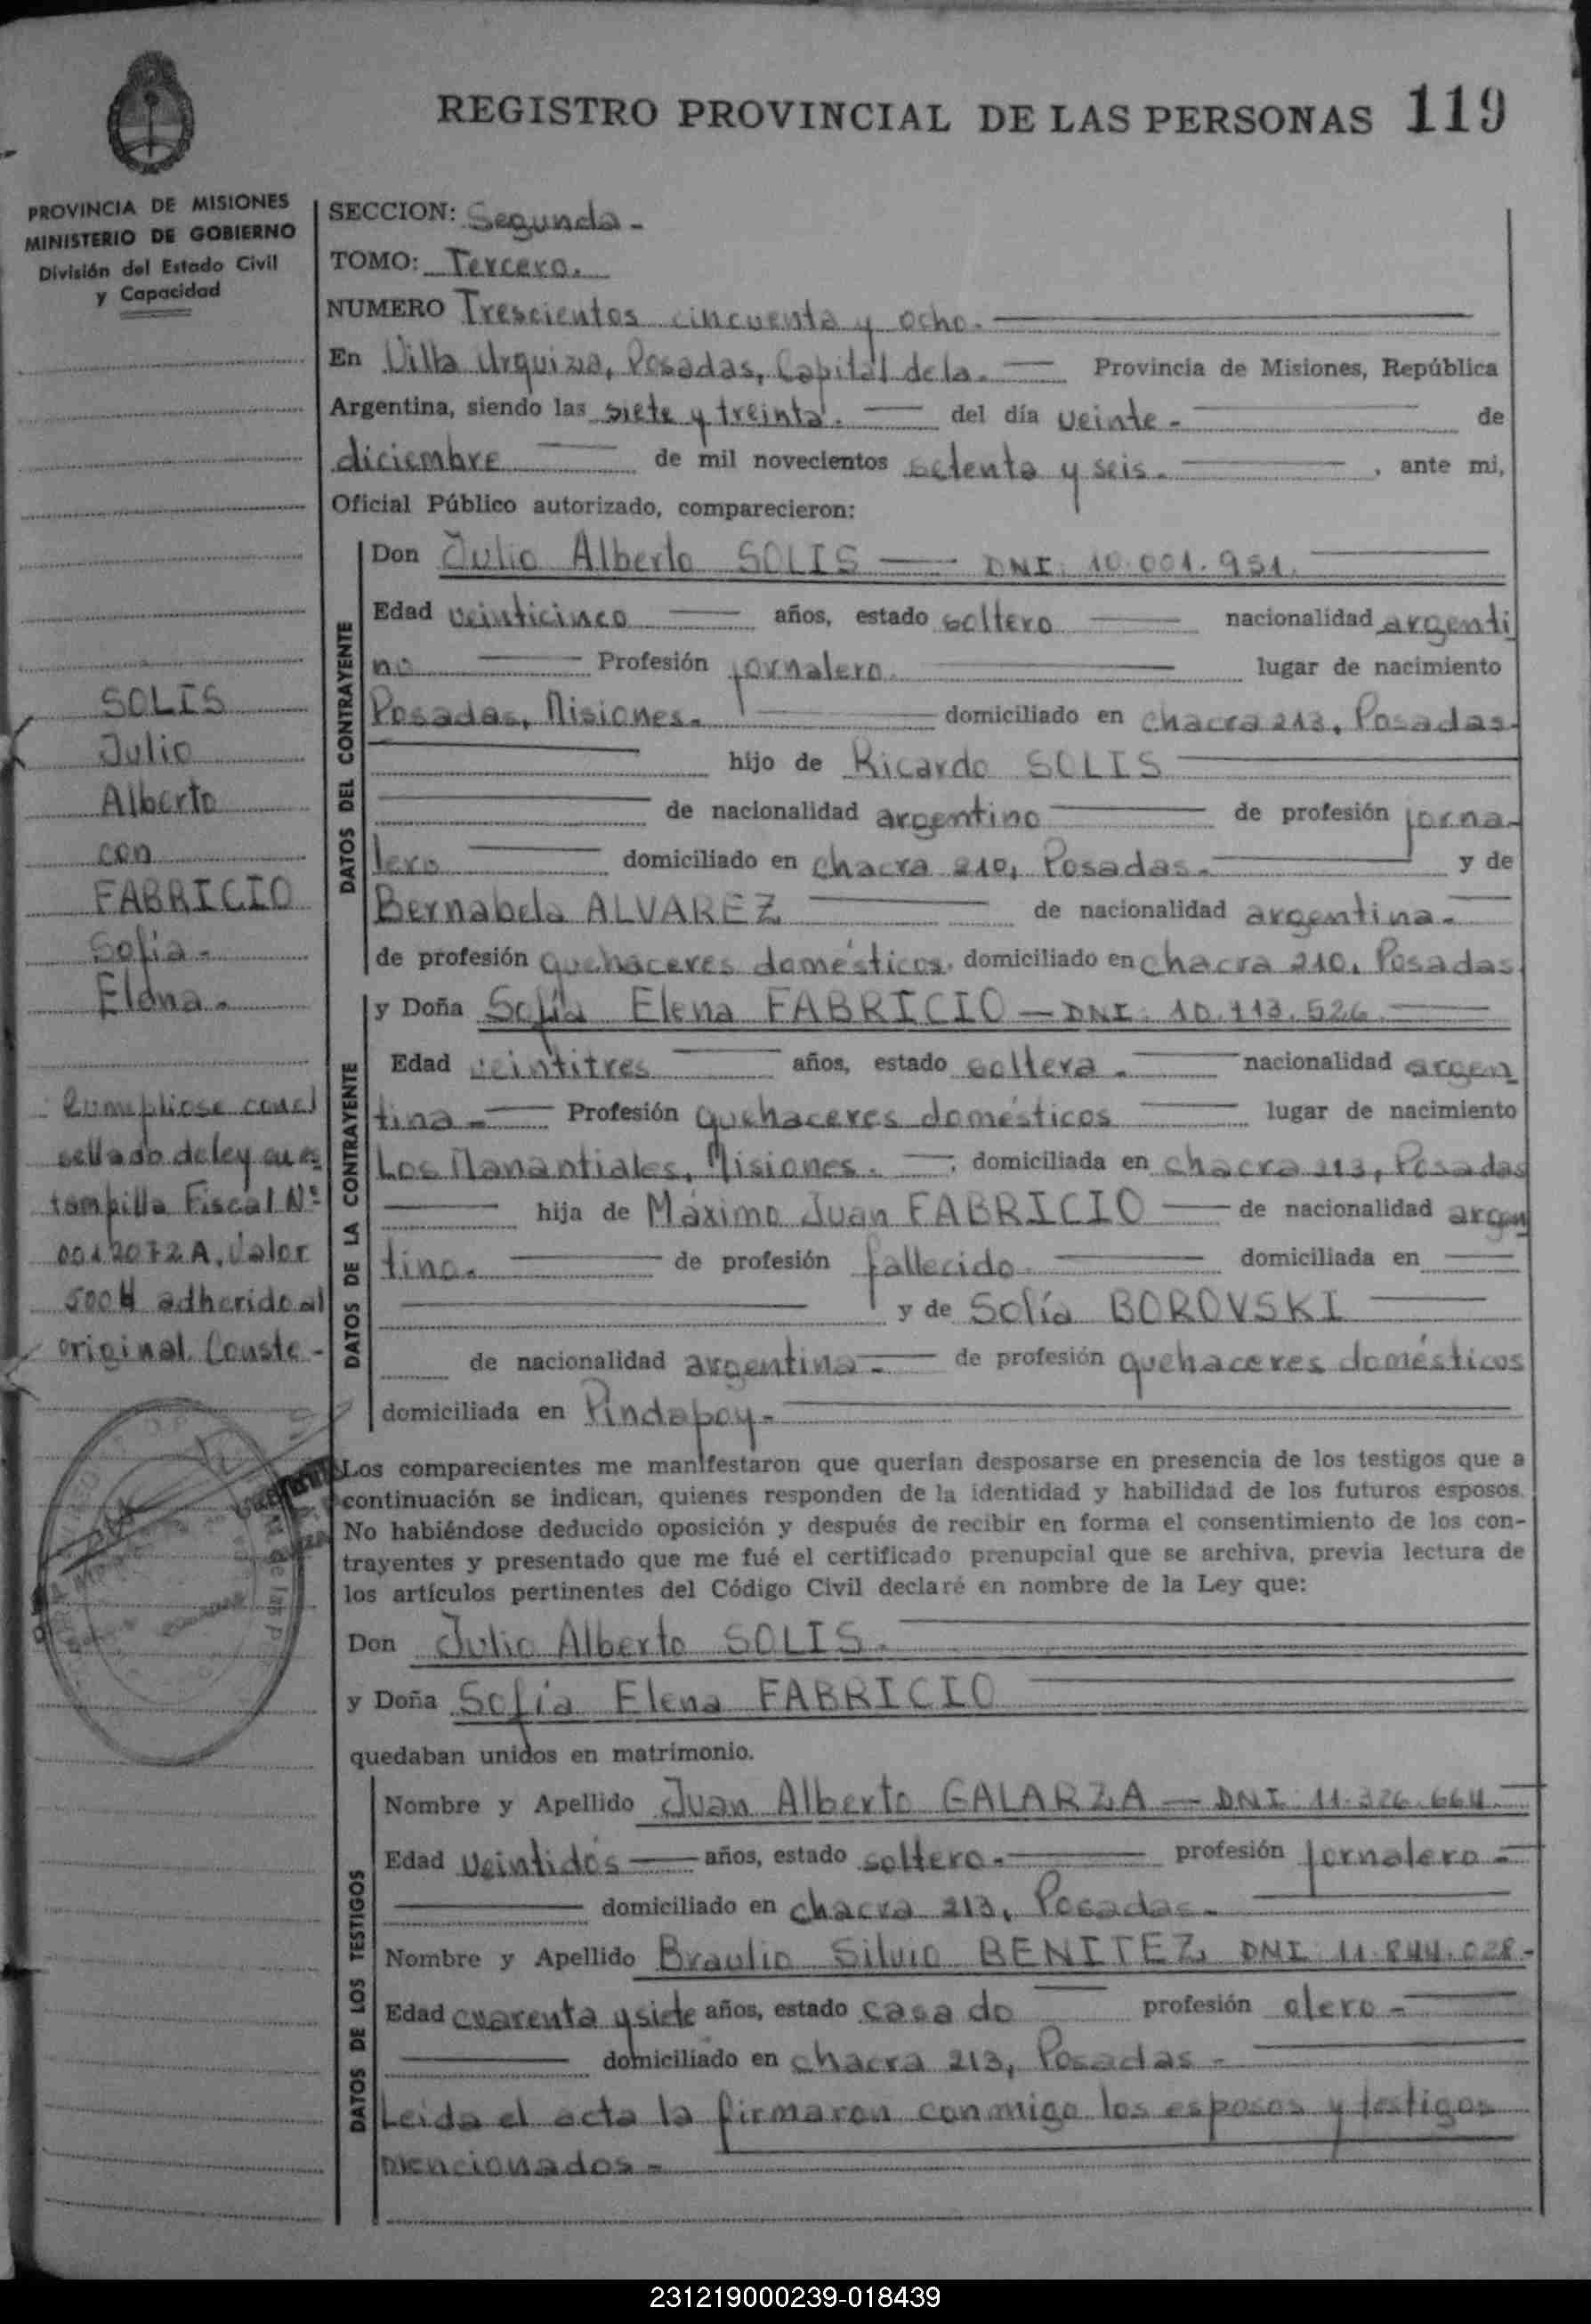 REGISTRO PROVINCIAL DE LAS PERSONAS 119
PROVINCIA DE MISIONES
MINISTERIO DE GOBIERNO
División del Estado Civil
y Capacidad
SECCION: Segunda -
TOMO: Tercero.
NUMERO Trescientos cincuenta y ocho.
En Villa Urquiza, Posadas, Capital de la. Provincia de Misiones, República
Argentina, siendo las siete y treinta. del día veinte - de
diciembre de mil novecientos setenta y seis. , ante mi,
Oficial Público autorizado, comparecieron:
DATOS DEL CONTRAYENTE
Don Julio Alberto SOLIS — DNI. 10.001.951.
Edad veinticinco años, estado soltero nacionalidad argenti
no Profesión jornalero. lugar de nacimiento
Posadas, Misiones. domiciliado en chacra 213, Posadas.
hijo de Ricardo SOLIS
de nacionalidad argentino de profesión jorna-
lero domiciliado en chacra 210, Posadas. y de
Bernabela ALVAREZ de nacionalidad argentina.
de profesión quehaceres domésticos. domiciliado en chacra 210, Posadas
SOLIS
Julio
Alberto
con
FABRICIO
Sofía -
Elena -
DATOS DE LA CONTRAYENTE
y Doña Sofía Elena FABRICIO — DNI. 10.113.526.
Edad veintitres años, estado soltera. nacionalidad argen
tina - Profesión quehaceres domésticos lugar de nacimiento
Los Manantiales, Misiones. domiciliada en chacra 213, Posadas
hija de Máximo Juan FABRICIO de nacionalidad argen
tino. de profesión fallecido. domiciliada en
y de Sofía BOROVSKI
de nacionalidad argentina - de profesión quehaceres domésticos
domiciliada en Pindapoy -
Cumpliose con el
sellado de ley en es
tampilla Fiscal Nº
0012072A, Valor
500 adherido al
original. Conste -
Los comparecientes me manifestaron que querían desposarse en presencia de los testigos que a
continuación se indican, quienes responden de la identidad y habilidad de los futuros esposos.
No habiéndose deducido oposición y después de recibir en forma el consentimiento de los con-
trayentes y presentado que me fué el certificado prenupcial que se archiva, previa lectura de
los artículos pertinentes del Código Civil declaré en nombre de la Ley que:
Don Julio Alberto SOLIS.
y Doña Sofía Elena FABRICIO
quedaban unidos en matrimonio.
DATOS DE LOS TESTIGOS
Nombre y Apellido Juan Alberto GALARZA — DNI 11.326.664.
Edad Veintidós años, estado soltero. profesión jornalero -
domiciliado en chacra 213, Posadas.
Nombre y Apellido Braulio Silvio BENITEZ, DNI 11.844.028 -
Edad cuarenta y siete años, estado casado profesión olero -
domiciliado en chacra 213, Posadas -
Leida el acta la firmaron conmigo los esposos y testigos
mencionados -
231219000239-018439